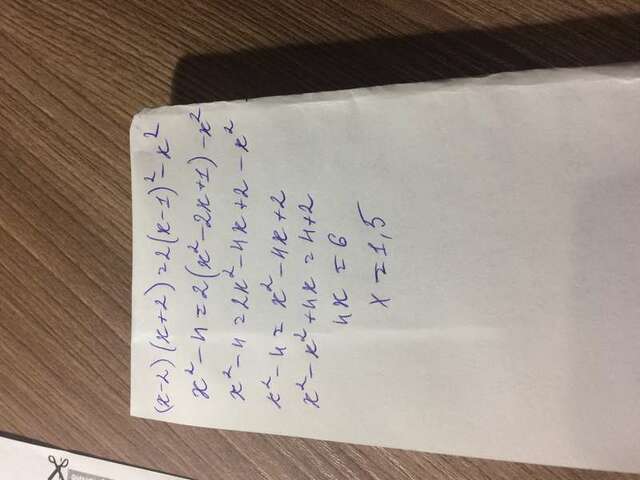 (x-2)(x+2)=2(x-1)²-x²
x²-4=2(x²-2x+1)-x²
x²-4=2x²-4x+2-x²
x²-4=x²-4x+2
x²-x²+4x=4+2
4x=6
x=1,5